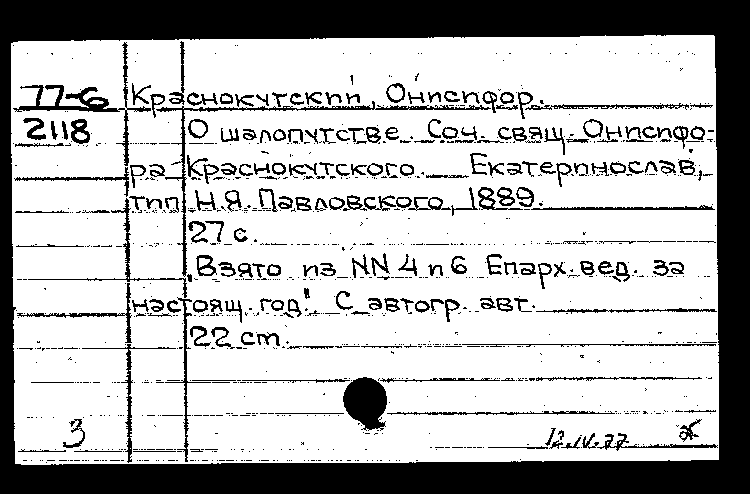 77-6 Краснокутский, Онисифор.
2118 О шалопутстве. Соч. свящ. Онисифо-
ра Краснокутского. Екатеринослав,
тип. Н.Я. Павловского, 1889.
27 с.
„Взято из NN 4 и 6 Епарх. вед. за
настоящ. год". С автогр. авт.
22 cm.
3 12.IV.77